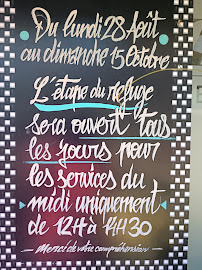 Du lundi 28 Août
au dimanche 15 Octobre
L'étape du refuge
sera ouvert tous
les jours pour
les services du
midi uniquement
de 12H à 14H30
Merci de votre compréhension